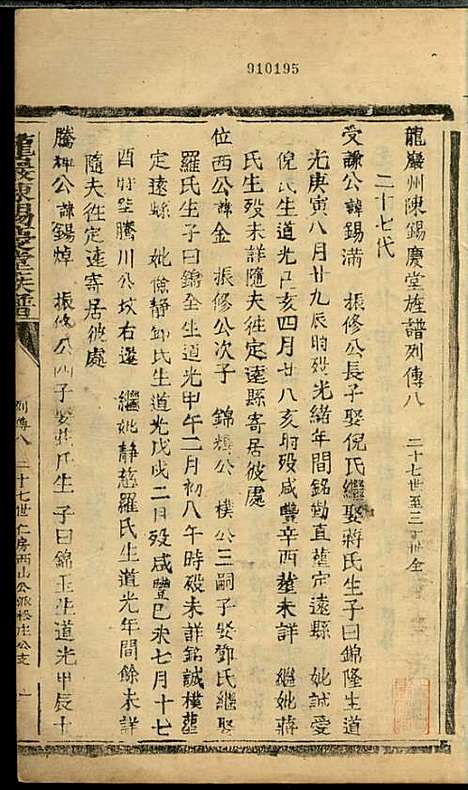 910195
龍巖州陳錫慶堂族譜列傳八 二十七世至三十世全
二十七代
受謙公諱錫滿 振修公長子娶倪氏繼娶蔣氏生子曰錦隆生道
光庚寅八月廿九辰時歿光緒年間銘勁直塟定遠縣 妣誠愛
倪氏生道光己亥四月廿八亥時歿咸豐辛酉塟未詳 繼妣蔣
氏生歿未詳隨夫徃定遠縣寄居彼處
位西公諱金 振修公次子 錦 公 樸公三嗣子娶鄧氏繼娶
羅氏生子曰錦全生道光甲午二月初八午時歿未詳銘誠樸塟
定遠縣 妣儉靜鄧氏生道光戊戌二月歿咸豐己未七月十七
酉時塟騰川公坟右邊 繼妣靜慈羅氏生道光年間餘未詳
隨夫徃定遠寄居彼處
騰輝公諱錫焯 振修公四子娶 氏生子曰錦玉生道光甲辰十
龍巖陳錫慶堂族譜
列傳八 二十七世仁房西山公派松庄公支 一